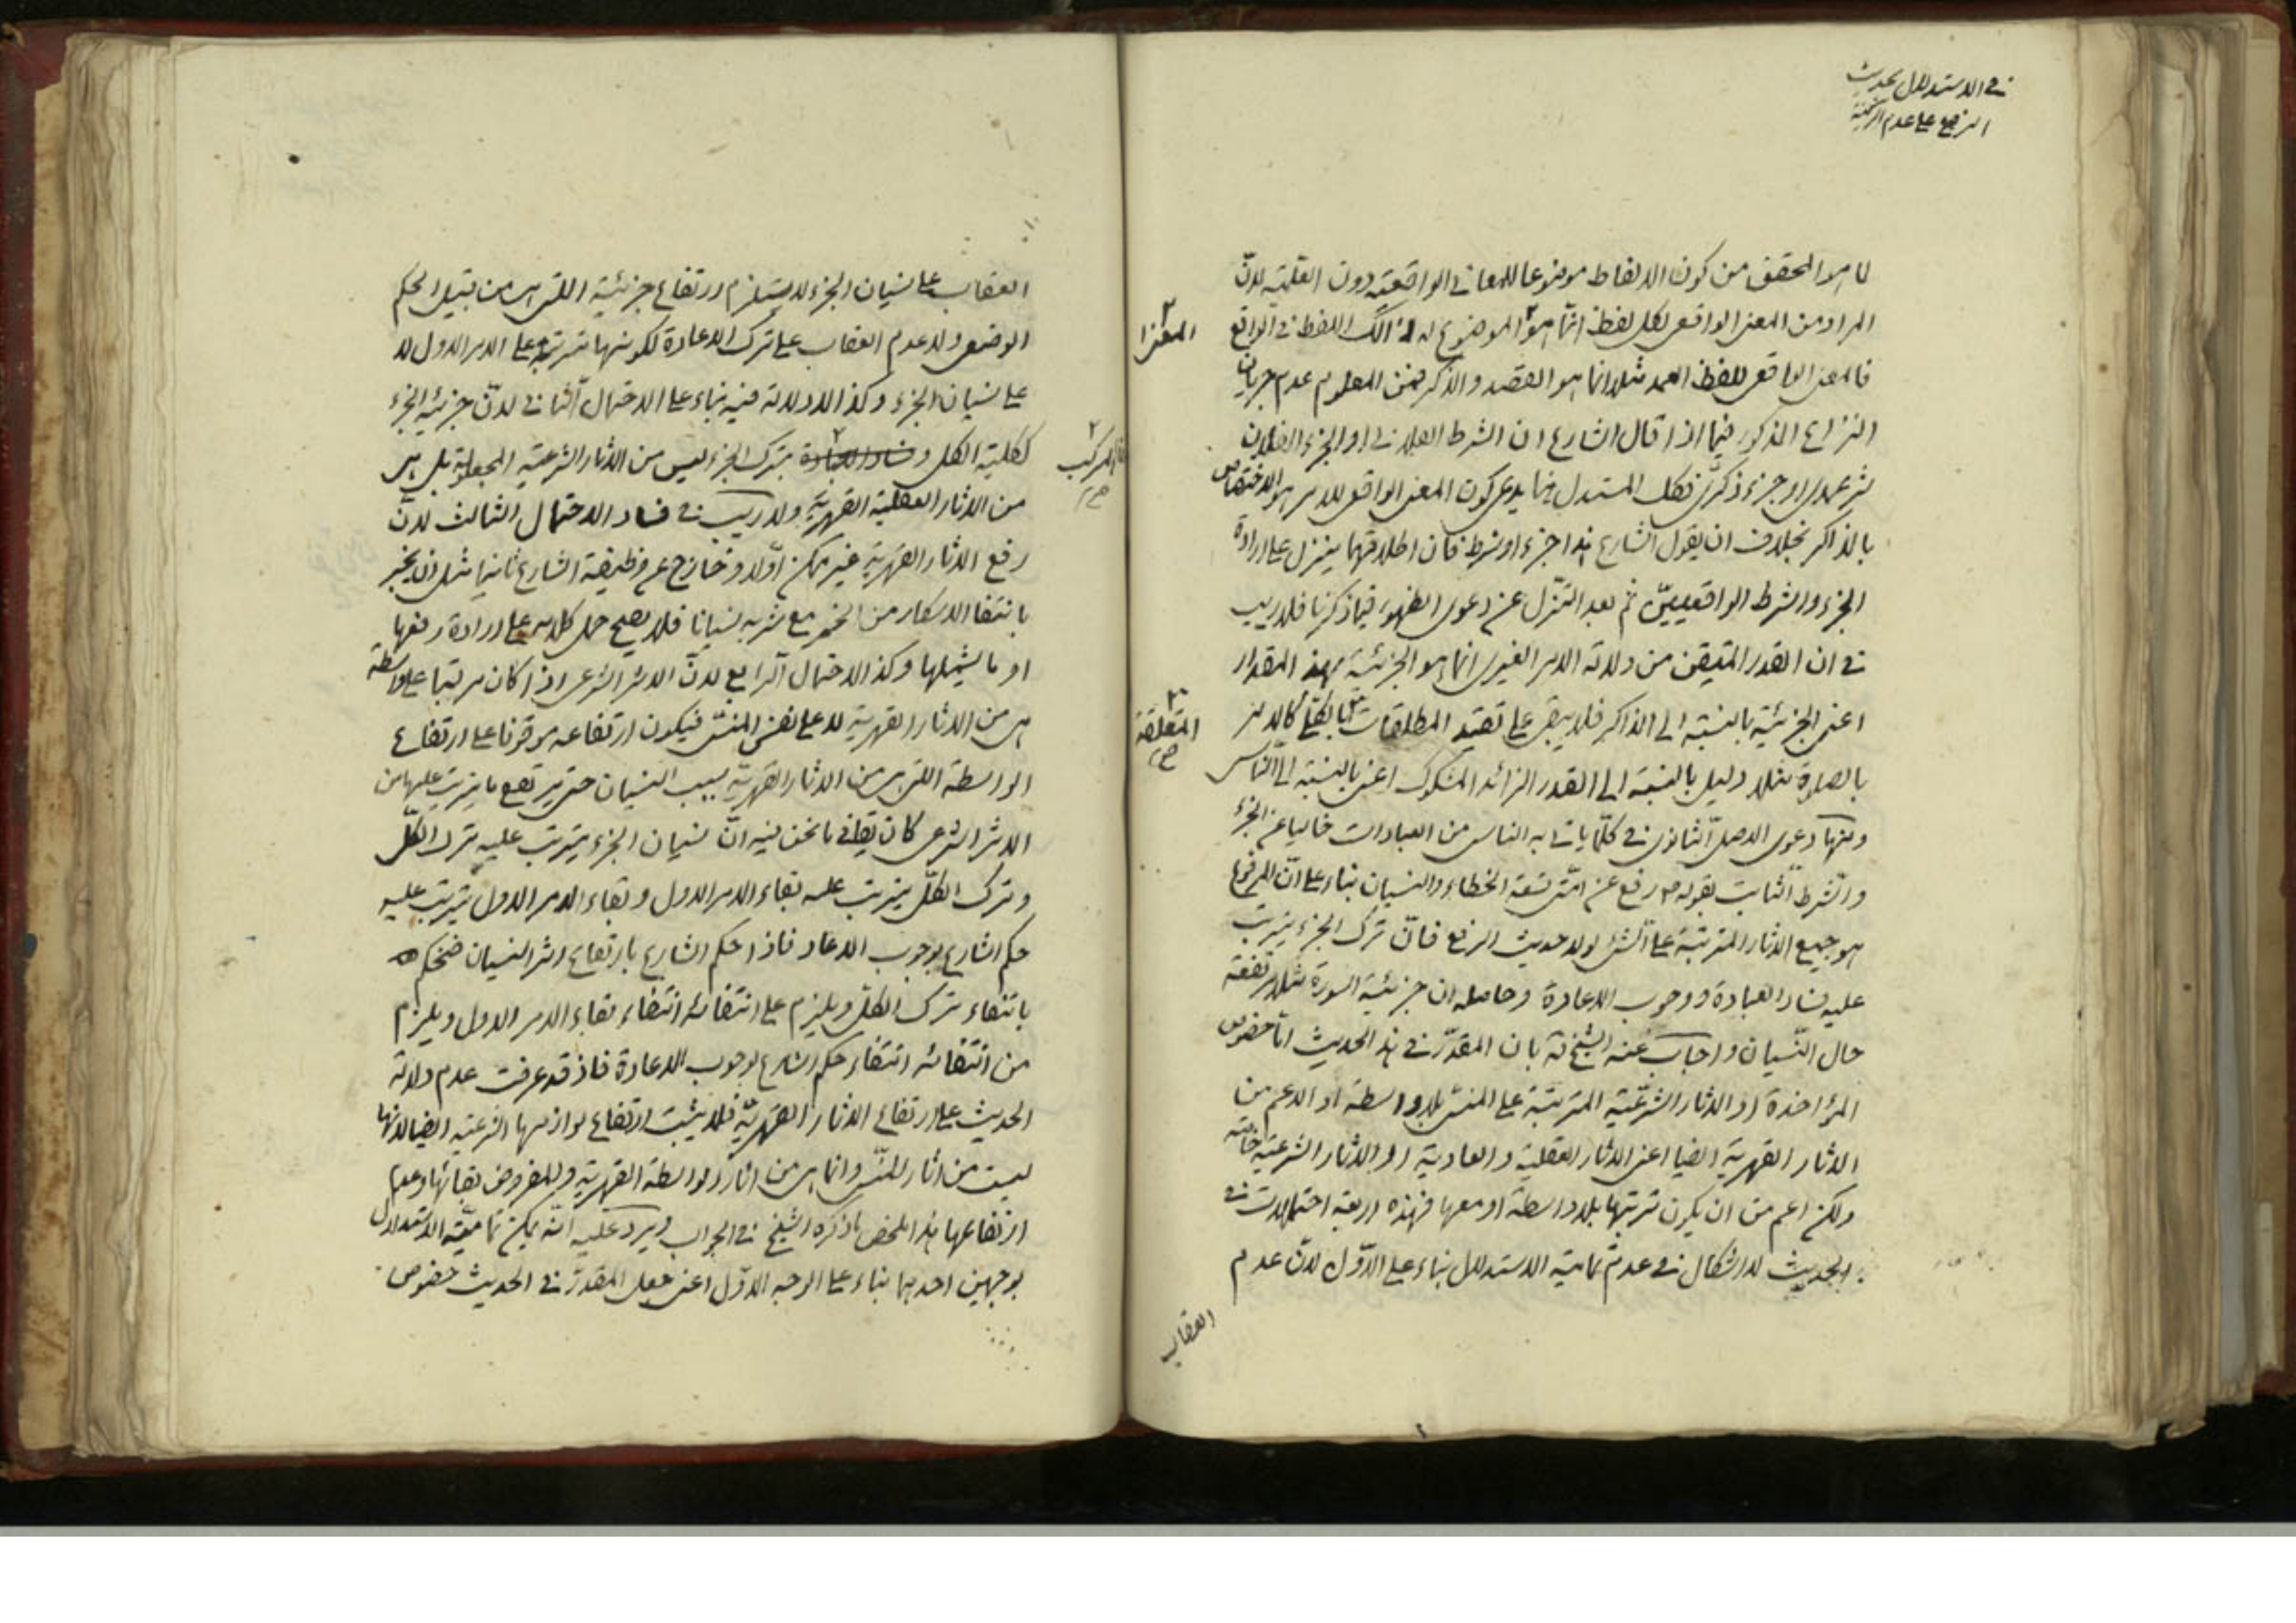 في الاستدلال بحديث
الرفع على عدم الركنية
لما هو المحقق من كون الالفاظ موضوعا للمعاني الواقعية دون العلمية لانّ
المراد من المعنى الواقعي لكل لفظ انّما هو الموضوع له لذلك اللفظ في الواقع
المعنى
فالمعنى الواقعي للفظ العمد مثلا انما هو القصد والذكر فمن المعلوم عدم جريان
النزاع المذكور فيما اذا قال الشارع ان الشرط الفلاني او الجزء الفلاني
شرط عمدي او جزء ذكري فكل المستدل فيما يدعي كون المعنى الواقعي للامر هو الاختصاص
بالذاكر بخلاف ان يقول الشارع هذا جزء او شرط فان اطلاقهما ينزل على ارادة
الجزء والشرط الواقعيينّ ثم بعد التنزل عن دعوى الظهور فيما ذكرنا فلا ريب
في ان القدر المتيقن من دلالة الامر الغيري انما هو الجزئية بهذا المقدار
اعني الجزئية بالنسبة الى الذاكر فلا يبقى على تقييد المطلقات بالكل كالامر
المتعلقة
صح
بالصلوة مثلا دليل بالنسبة الى القدر الزائد المشكوك اعني بالنسبة الى الناسي
ومنها دعوى الاصل الثانوي في كلّما ياتي به الناس من العبادات خاليا عن الجزء
والشرط الثابت بقوله ص رفع عن امتي تسعة الخطاء والنسيان بناء على انّ المرفوع
هو جميع الاثار المترتبة على الشئ لولا حديث الرفع فانّ ترك الجزء يترتب
عليه فساد العبادة ووجوب الاعادة وحاصله ان جزئية السورة مثلا مرتفعة
حال النّسيان واجاب عنه الشيخ ره بان المقدّر في هذا الحديث اما خصوص
المؤاخذة او الاثار الشرعيّة المترتبة على المنسي بلا واسطة او الاعم من
الاثار القهرية ايضا اعني الاثار العقلية والعادية او الاثار الشرعية خاصة
ولكن اعم من ان يكون ترتبها بلا واسطة او معها فهذه اربعة احتمالات في
الحديث لا اشكال في عدم تمامية الاستدلال بناء على الاوّل لانّ عدم
العقاب
العقاب على نسيان الجزء لا يستلزم ارتفاع جزئيته اللتي هي من قبيل الحكم
الوضعي ولا عدم العقاب على ترك الاعادة لكونها مترتبة على الامر الاول لا
على نسيان الجزء وكذا لا دلالة فيه بناء على الاحتمال الثاني لانّ جزئية الجزء
ككلية الكل و فساد العبادة بترك الجزء ليس من الاثار الشرعية المجعولة بل هي
المركب
صح
من الاثار العقلية القهرية ولا ريب في فساد الاحتمال الثالث لانّ
رفع الاثار القهرية غير ممكن اوّلا وخارج عن وظيفة الشارع ثانيا مثل ان يخبر
بانتفا الاسكار من الخمر مع شربه نسيانا فلا يصح حمل كلامه على ارادة رفعها
او ما يشملها وكذا الاحتمال الرابع لانّ الاثر الشرعي اذا كان مرتبا على واسطة
هي من الاثار القهرية لا على نفس المنسي فيكون ارتفاعه موقوفا على ارتفاع
الواسطة اللتي هي من الاثار القهريّة بسبب النسيان حتى يرتفع ما يترتب عليها من
الاثر الشرعي كان يقال في ما نحن فيه انّ نسيان الجزء يترتب عليه ترك الكلّ
وترك الكلّ يترتب عليه بقاء الامر الاول وبقاء الامر الاول يترتب عليه
حكم الشارع بوجوب الاعاد فاذا حكم الشارع بارتفاع اثر النسيان فنحكم
بانتفاء ترك الكل ويلزم على انتفائه انتفاء بقاء الامر الاول ويلزم
من انتفائه انتفاء حكم الشارع بوجوب الاعادة فاذ قد عرفت عدم دلالة
الحديث على ارتفاع الاثار القهريّة فلا يثبت ارتفاع لوازمها الشرعية ايضا لانها
ليست من اثار المنسي وانما هي من اثار الواسطة القهرية والمفروض بقائها وعدم
ارتفاعها هذا ملخص ما ذكره الشيخ في الجواب ويرد عليه انّه يمكن تماميّة الاستدلال
بوجهين احدهما بناء على الوجه الاوّل اعني جعل المقدّر في الحديث خصوص